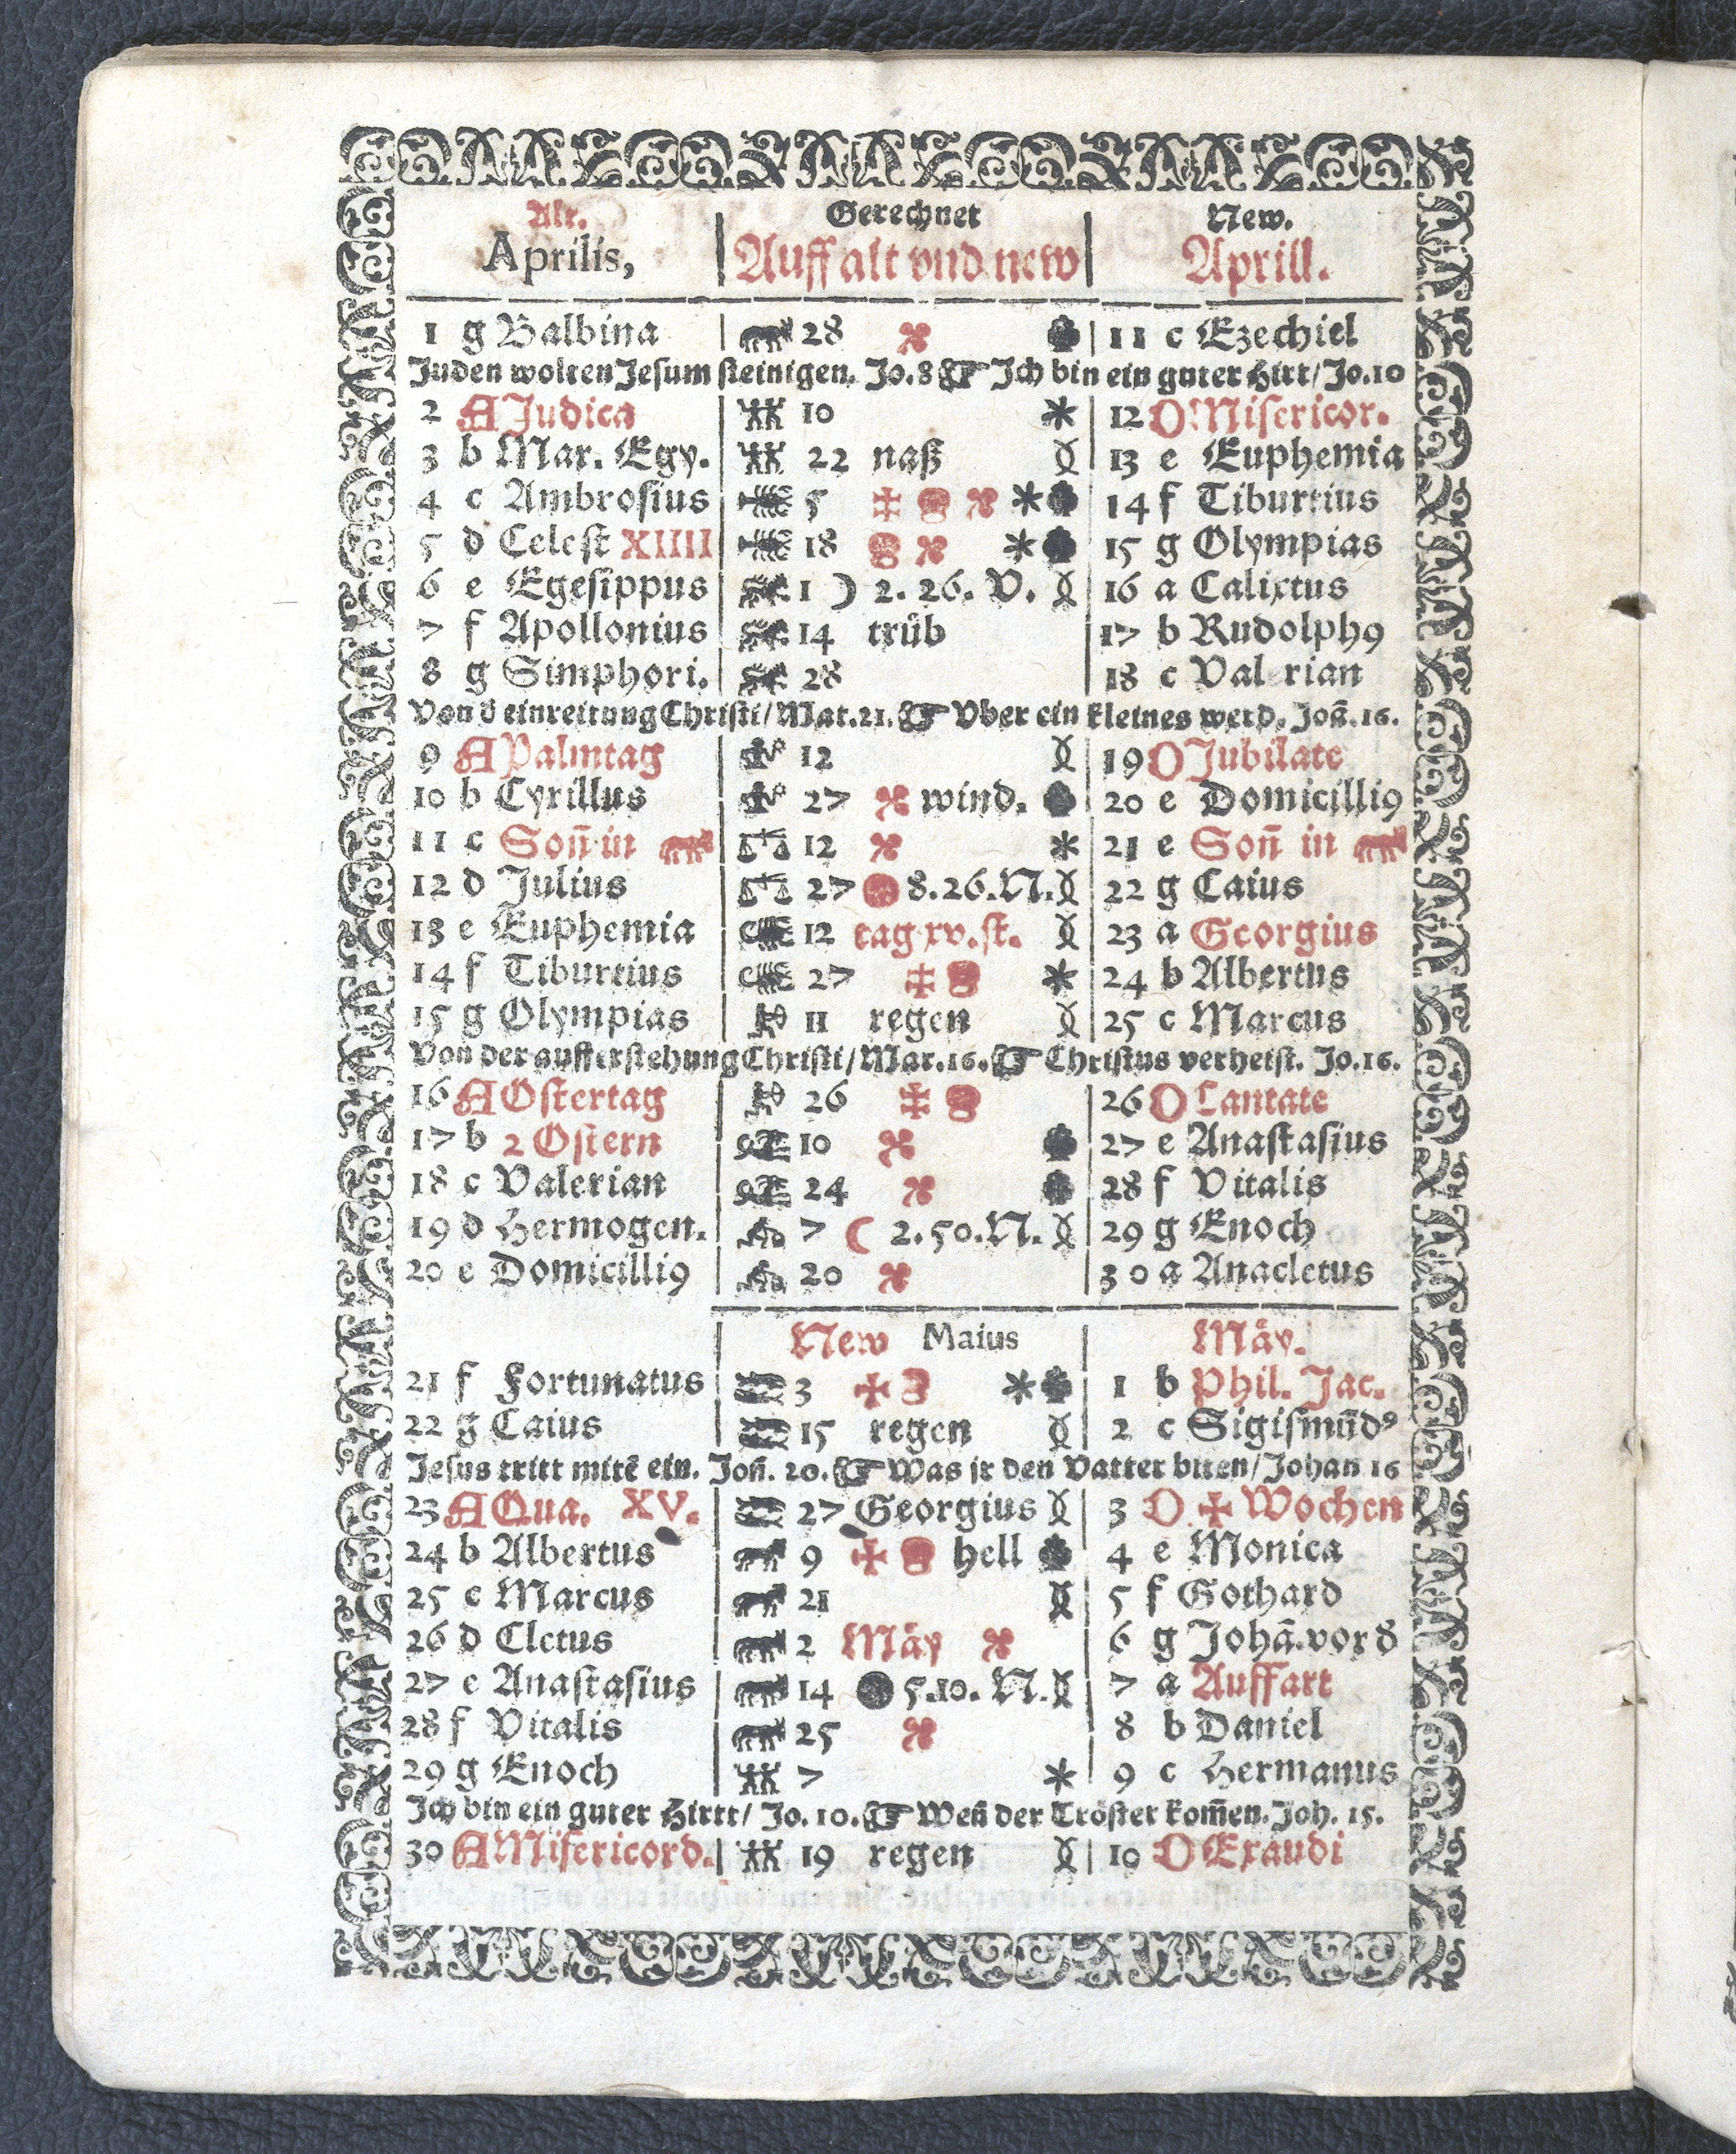 Alt. Gerechnet New.
Aprilis, Auff alt vnd new Aprill.
1 g Balbina 28 11 c Ezechiel
Juden wolten Jesum steinigen. Jo. 8 Ich bin ein guter Hirt/ Jo. 10
2 A Judica 10 12 D Misericor.
3 b Mar. Egy. 22 naß 13 e Euphemia
4 c Ambrosius 5 14 f Tiburtius
5 d Celest XIIII 18 15 g Olympias
6 e Egesippus 1 ☽ 2. 26. V. 16 a Calixtus
7 f Apollonius 14 trüb 17 b Rudolph9
8 g Simphori. 28 18 c Valerian
Von d einreitung Christi/ Mat. 21. Vber ein kleines werd. Joh̄. 16.
9 A Palmtag 12 19 D Jubilate
10 b Cyrillus 27 wind. 20 e Domicilli9
11 c Son̄ in 12 21 e Son̄ in
12 d Julius 27 8. 26. N. 22 g Caius
13 e Euphemia 12 tag xv. st. 23 a Georgius
14 f Tiburtius 27 24 b Albertus
15 g Olympias 11 regen 25 c Marcus
Von der aufferstehung Christi/ Mar. 16. Christus verheist. Jo. 16.
16 A Ostertag 26 26 D Cantate
17 b 2 Ostern 10 27 e Anastasius
18 c Valerian 24 28 f Vitalis
19 d Hermogen. 7 ☾ 2. 50. N. 29 g Enoch
20 e Domicilli9 20 30 a Anacletus
New Maius Mäy.
21 f Fortunatus 3 1 b Phil. Jac.
22 g Caius 15 regen 2 c Sigismūd9
Jesus tritt mitē ein. Joh̄. 20. Was ir den Vatter biten/ Johan 16
23 A Qua. XV. 27 Georgius 3 D ✠ Wochen
24 b Albertus 9 hell 4 e Monica
25 c Marcus 21 5 f Gothard
26 d Cletus 2 Mäy 6 g Johā. vor d
27 e Anastasius 14 5. 10. N. 7 a Auffart
28 f Vitalis 25 8 b Daniel
29 g Enoch 7 9 c Hermanus
Ich bin ein guter Hirtt/ Jo. 10. Wen̄ der Tröster kom̄en. Joh. 15.
30 A Misericord. 19 regen 10 D Exaudi